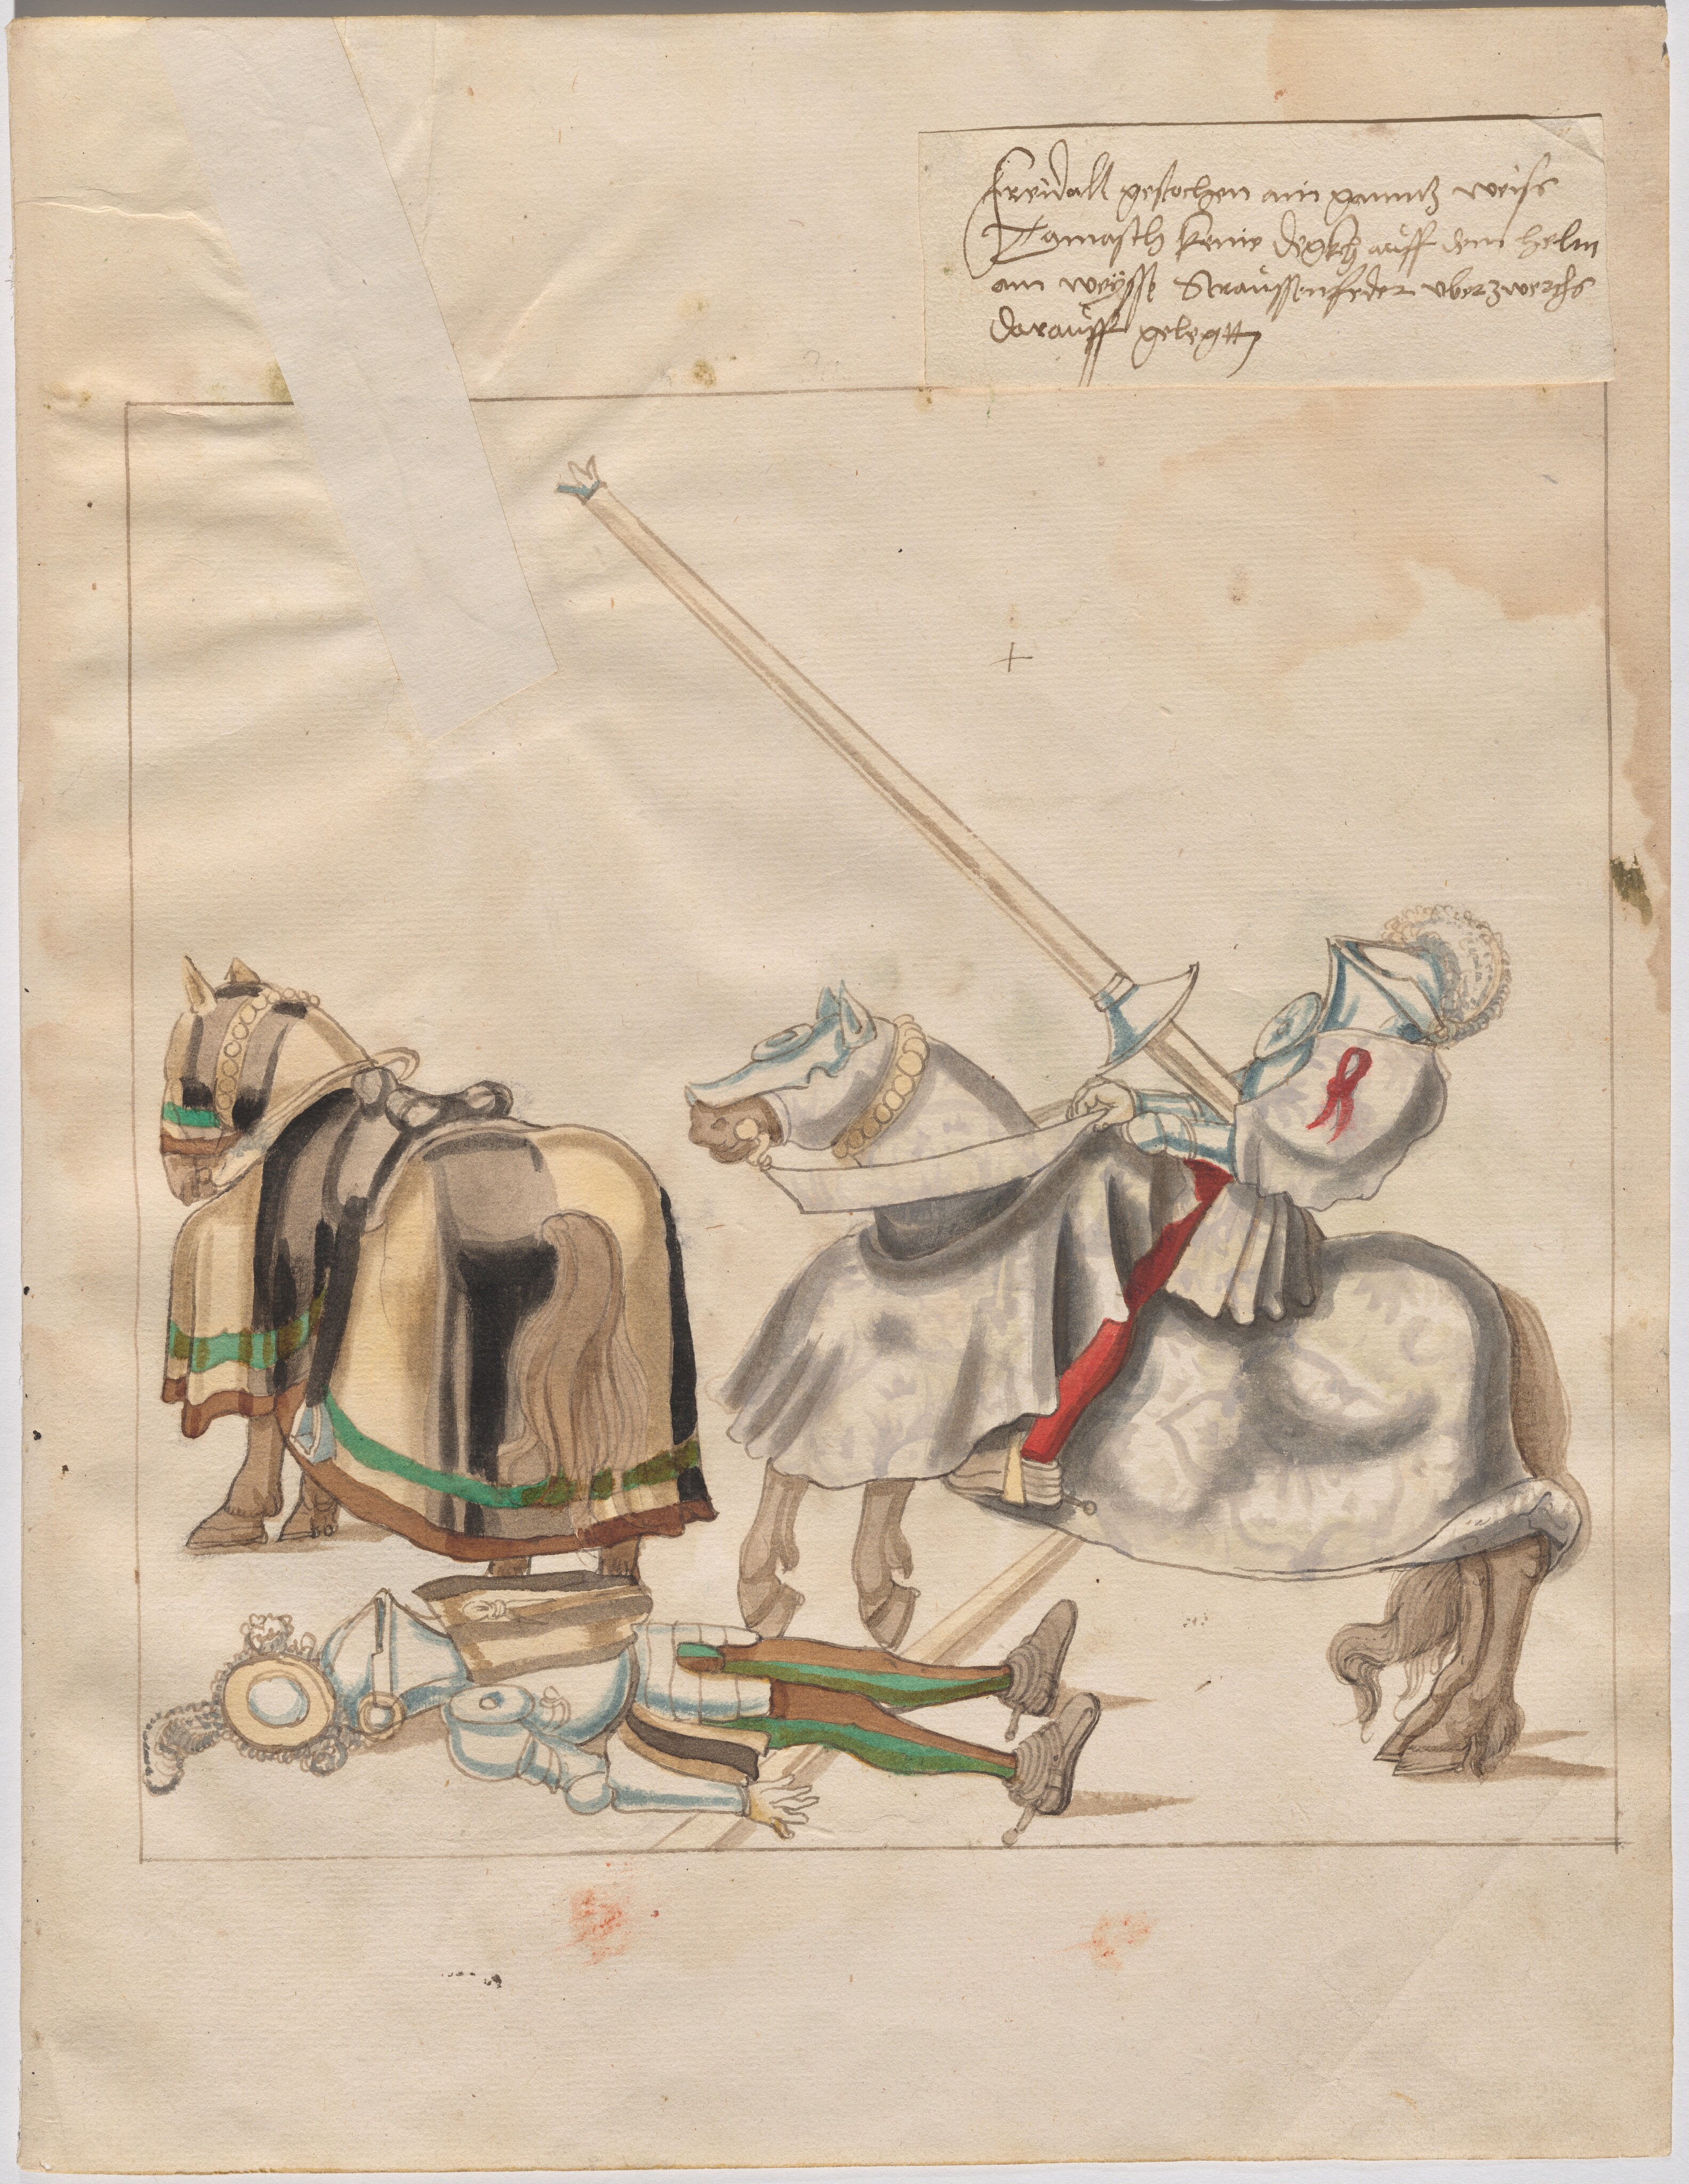 Freidall gestochen ain ganntz weiss
Damasch kenie degkh auff dem helm
ain weysse Straussenfeder uberzwerchs
darauff gelegtt